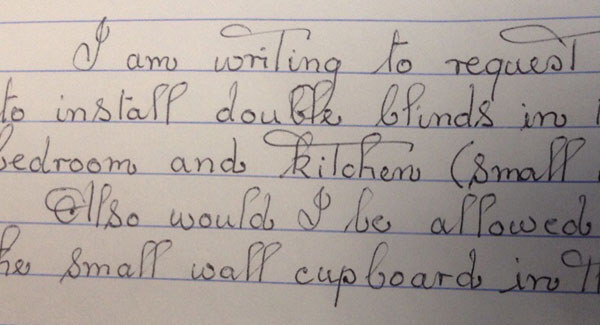 I am writing to request
to install double blinds in
bedroom and kitchen (small
Also would I be allowed
the small wall cupboard in